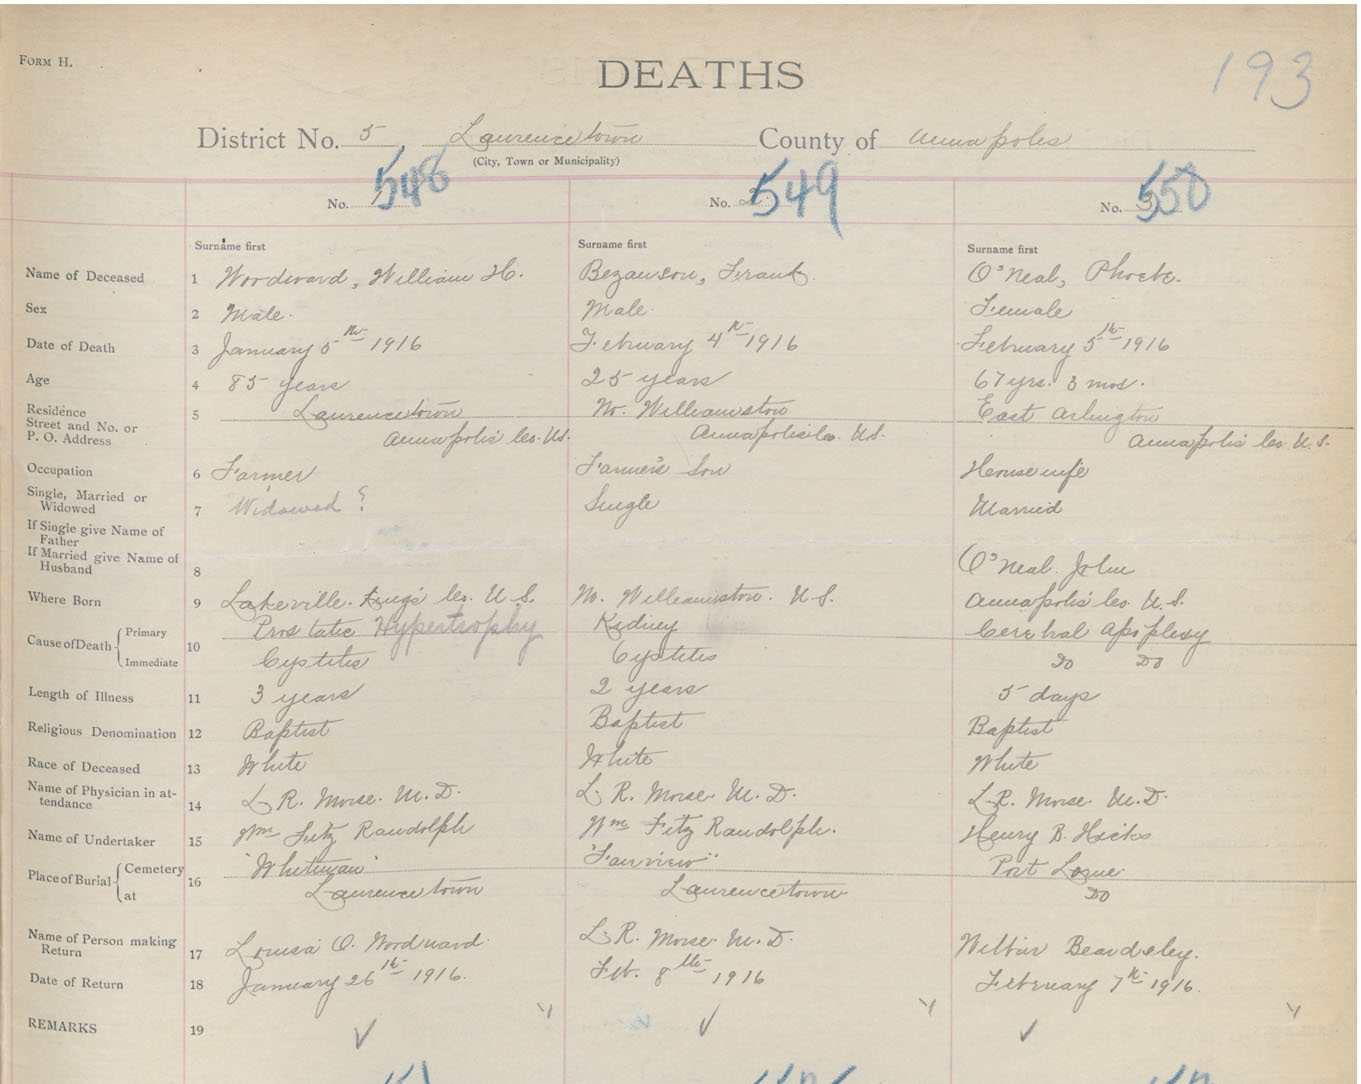 FORM H.
DEATHS
193
District No. 5, Laurencetown County of Annapolis
(City, Town or Municipality)
No. 1 548 No. 2 549 No. 3 550
Surname first Surname first Surname first
Name of Deceased 1 Woodward, William H. Bezanson, Frank. O'Neal, Phoebe.
Sex 2 Male. Male. Female
Date of Death 3 January 5th 1916 February 4th 1916 February 5th 1916
Age 4 85 years 25 years 67 yrs. 3 mos.
Residence
Street and No. or
P. O. Address 5 Laurencetown No. Williamston East Arlington
Annapolis Co. N.S. Annapolis Co. N.S. Annapolis Co. N.S.
Occupation 6 Farmer Farmer's Son Housewife
Single, Married or
Widowed 7 Widowed ? Single Married
If Single give Name of
Father
If Married give Name of
Husband 8 O'Neal. John
Where Born 9 Lakeville. King's Co. N.S. No. Williamston. N.S. Annapolis Co. N.S.
Cause of Death 10
Primary Prostatic Hypertrophy Kidney Cerebral Apoplexy
Immediate Cystitis Cystitis Do Do
Length of Illness 11 3 years 2 years 5 days
Religious Denomination 12 Baptist Baptist Baptist
Race of Deceased 13 White White White
Name of Physician in at-
tendance 14 L. R. Morse. M.D. L. R. Morse. M.D. L. R. Morse. M.D.
Name of Undertaker 15 Wm Fitz Randolph Wm Fitz Randolph. Henry B. Hicks
Place of Burial 16
Cemetery "Whitman" "Fairview" Port Lorne.
at Laurencetown Laurencetown Do
Name of Person making
Return 17 Louisa O. Woodward. L. R. Morse. M.D. Wilbur Beardsley.
Date of Return 18 January 26th 1916. Feb. 8th 1916 February 7th 1916.
REMARKS 19